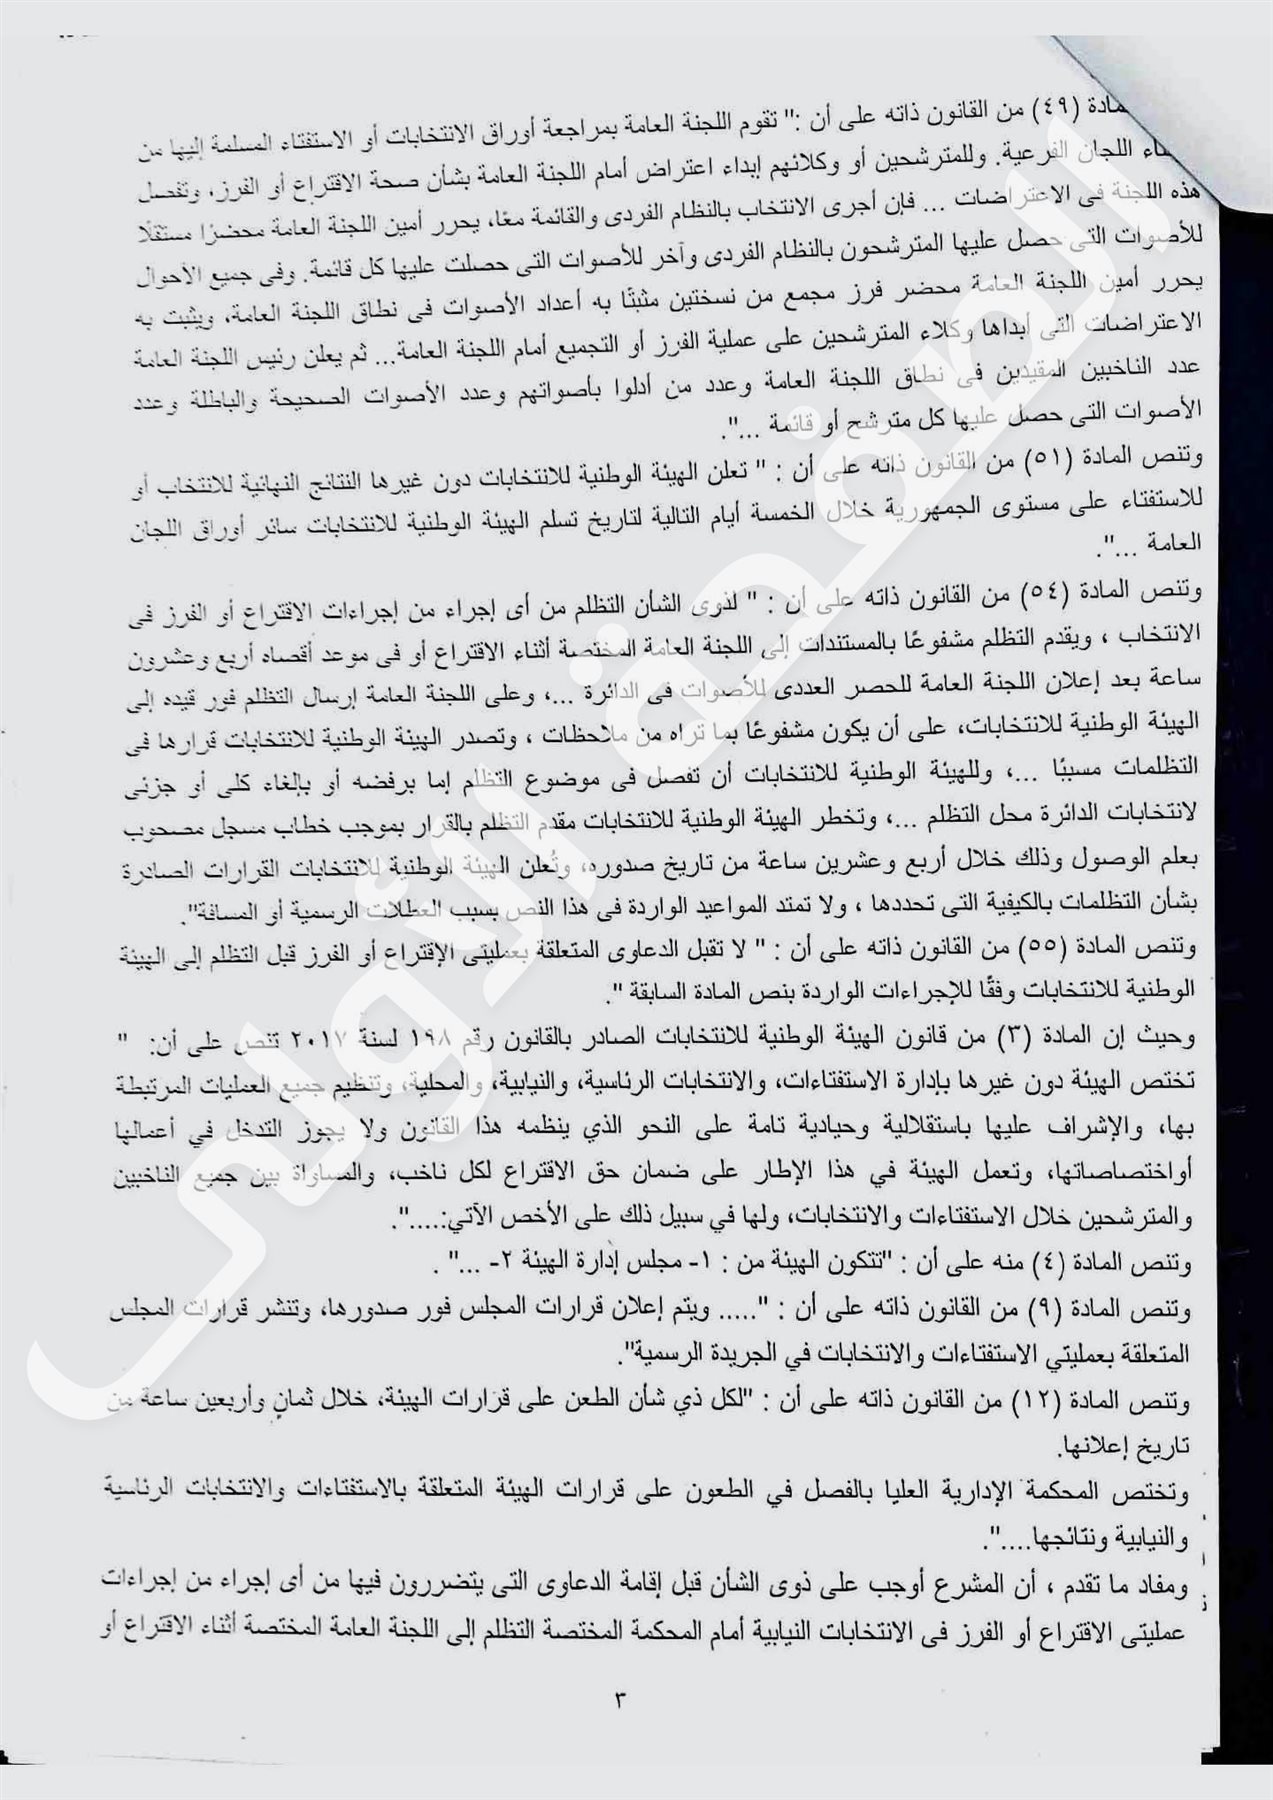 مادة (٤٩) من القانون ذاته على أن :" تقوم اللجنة العامة بمراجعة أوراق الانتخابات أو الاستفتاء المسلمة إليها من
اللجان الفرعية. وللمترشحين أو وكلائهم إبداء اعتراض أمام اللجنة العامة بشأن صحة الاقتراع أو الفرز، وتفصل
هذه اللجنة فى الاعتراضات ... فإن أجرى الانتخاب بالنظام الفردى والقائمة معًا، يحرر أمين اللجنة العامة محضرًا مستقلًا
للأصوات التى حصل عليها المترشحون بالنظام الفردى وآخر للأصوات التى حصلت عليها كل قائمة. وفى جميع الأحوال
يحرر أمين اللجنة العامة محضر فرز مجمع من نسختين مثبتًا به أعداد الأصوات فى نطاق اللجنة العامة، ويثبت به
الاعتراضات التى أبداها وكلاء المترشحين على عملية الفرز أو التجميع أمام اللجنة العامة... ثم يعلن رئيس اللجنة العامة
عدد الناخبين المقيدين فى نطاق اللجنة العامة وعدد من أدلوا بأصواتهم وعدد الأصوات الصحيحة والباطلة وعدد
الأصوات التى حصل عليها كل مترشح أو قائمة ...".
وتنص المادة (٥١) من القانون ذاته على أن : " تعلن الهيئة الوطنية للانتخابات دون غيرها النتائج النهائية للانتخاب أو
للاستفتاء على مستوى الجمهورية خلال الخمسة أيام التالية لتاريخ تسلم الهيئة الوطنية للانتخابات سائر أوراق اللجان
العامة ...".
وتنص المادة (٥٤) من القانون ذاته على أن : " لذوى الشأن التظلم من أى إجراء من إجراءات الاقتراع أو الفرز فى
الانتخاب ، ويقدم التظلم مشفوعًا بالمستندات إلى اللجنة العامة المختصة أثناء الاقتراع أو فى موعد أقصاه أربع وعشرون
ساعة بعد إعلان اللجنة العامة للحصر العددى للأصوات فى الدائرة ...، وعلى اللجنة العامة إرسال التظلم فور قيده إلى
الهيئة الوطنية للانتخابات، على أن يكون مشفوعًا بما تراه من ملاحظات ، وتصدر الهيئة الوطنية للانتخابات قرارها فى
التظلمات مسببًا ...، وللهيئة الوطنية للانتخابات أن تفصل فى موضوع التظلم إما برفضه أو بإلغاء كلى أو جزئى
لانتخابات الدائرة محل التظلم ...، وتخطر الهيئة الوطنية للانتخابات مقدم التظلم بالقرار بموجب خطاب مسجل مصحوب
بعلم الوصول وذلك خلال أربع وعشرين ساعة من تاريخ صدوره، وتُعلن الهيئة الوطنية للانتخابات القرارات الصادرة
بشأن التظلمات بالكيفية التى تحددها ، ولا تمتد المواعيد الواردة فى هذا النص بسبب العطلات الرسمية أو المسافة".
وتنص المادة (٥٥) من القانون ذاته على أن : " لا تقبل الدعاوى المتعلقة بعمليتى الإقتراع أو الفرز قبل التظلم إلى الهيئة
الوطنية للانتخابات وفقًا للإجراءات الواردة بنص المادة السابقة ".
وحيث إن المادة (٣) من قانون الهيئة الوطنية للانتخابات الصادر بالقانون رقم ١٩٨ لسنة ٢٠١٧ تنص على أن: "
تختص الهيئة دون غيرها بإدارة الاستفتاءات، والانتخابات الرئاسية، والنيابية، والمحلية، وتنظيم جميع العمليات المرتبطة
بها، والإشراف عليها باستقلالية وحيادية تامة على النحو الذي ينظمه هذا القانون ولا يجوز التدخل في أعمالها
أواختصاصاتها، وتعمل الهيئة في هذا الإطار على ضمان حق الاقتراع لكل ناخب، والمساواة بين جميع الناخبين
والمترشحين خلال الاستفتاءات والانتخابات، ولها في سبيل ذلك على الأخص الآتي:....".
وتنص المادة (٤) منه على أن : "تتكون الهيئة من : ١- مجلس إدارة الهيئة ٢- ..." .
وتنص المادة (٩) من القانون ذاته على أن : "..... ويتم إعلان قرارات المجلس فور صدورها، وتنشر قرارات المجلس
المتعلقة بعمليتي الاستفتاءات والانتخابات في الجريدة الرسمية".
وتنص المادة (١٢) من القانون ذاته على أن : "لكل ذي شأن الطعن على قرارات الهيئة، خلال ثمانٍ وأربعين ساعة من
تاريخ إعلانها.
وتختص المحكمة الإدارية العليا بالفصل في الطعون على قرارات الهيئة المتعلقة بالاستفتاءات والانتخابات الرئاسية
والنيابية ونتائجها....".
ومفاد ما تقدم ، أن المشرع أوجب على ذوى الشأن قبل إقامة الدعاوى التى يتضررون فيها من أى إجراء من إجراءات
عمليتى الاقتراع أو الفرز فى الانتخابات النيابية أمام المحكمة المختصة التظلم إلى اللجنة العامة المختصة أثناء الاقتراع أو
٣
الصفحة الأولى